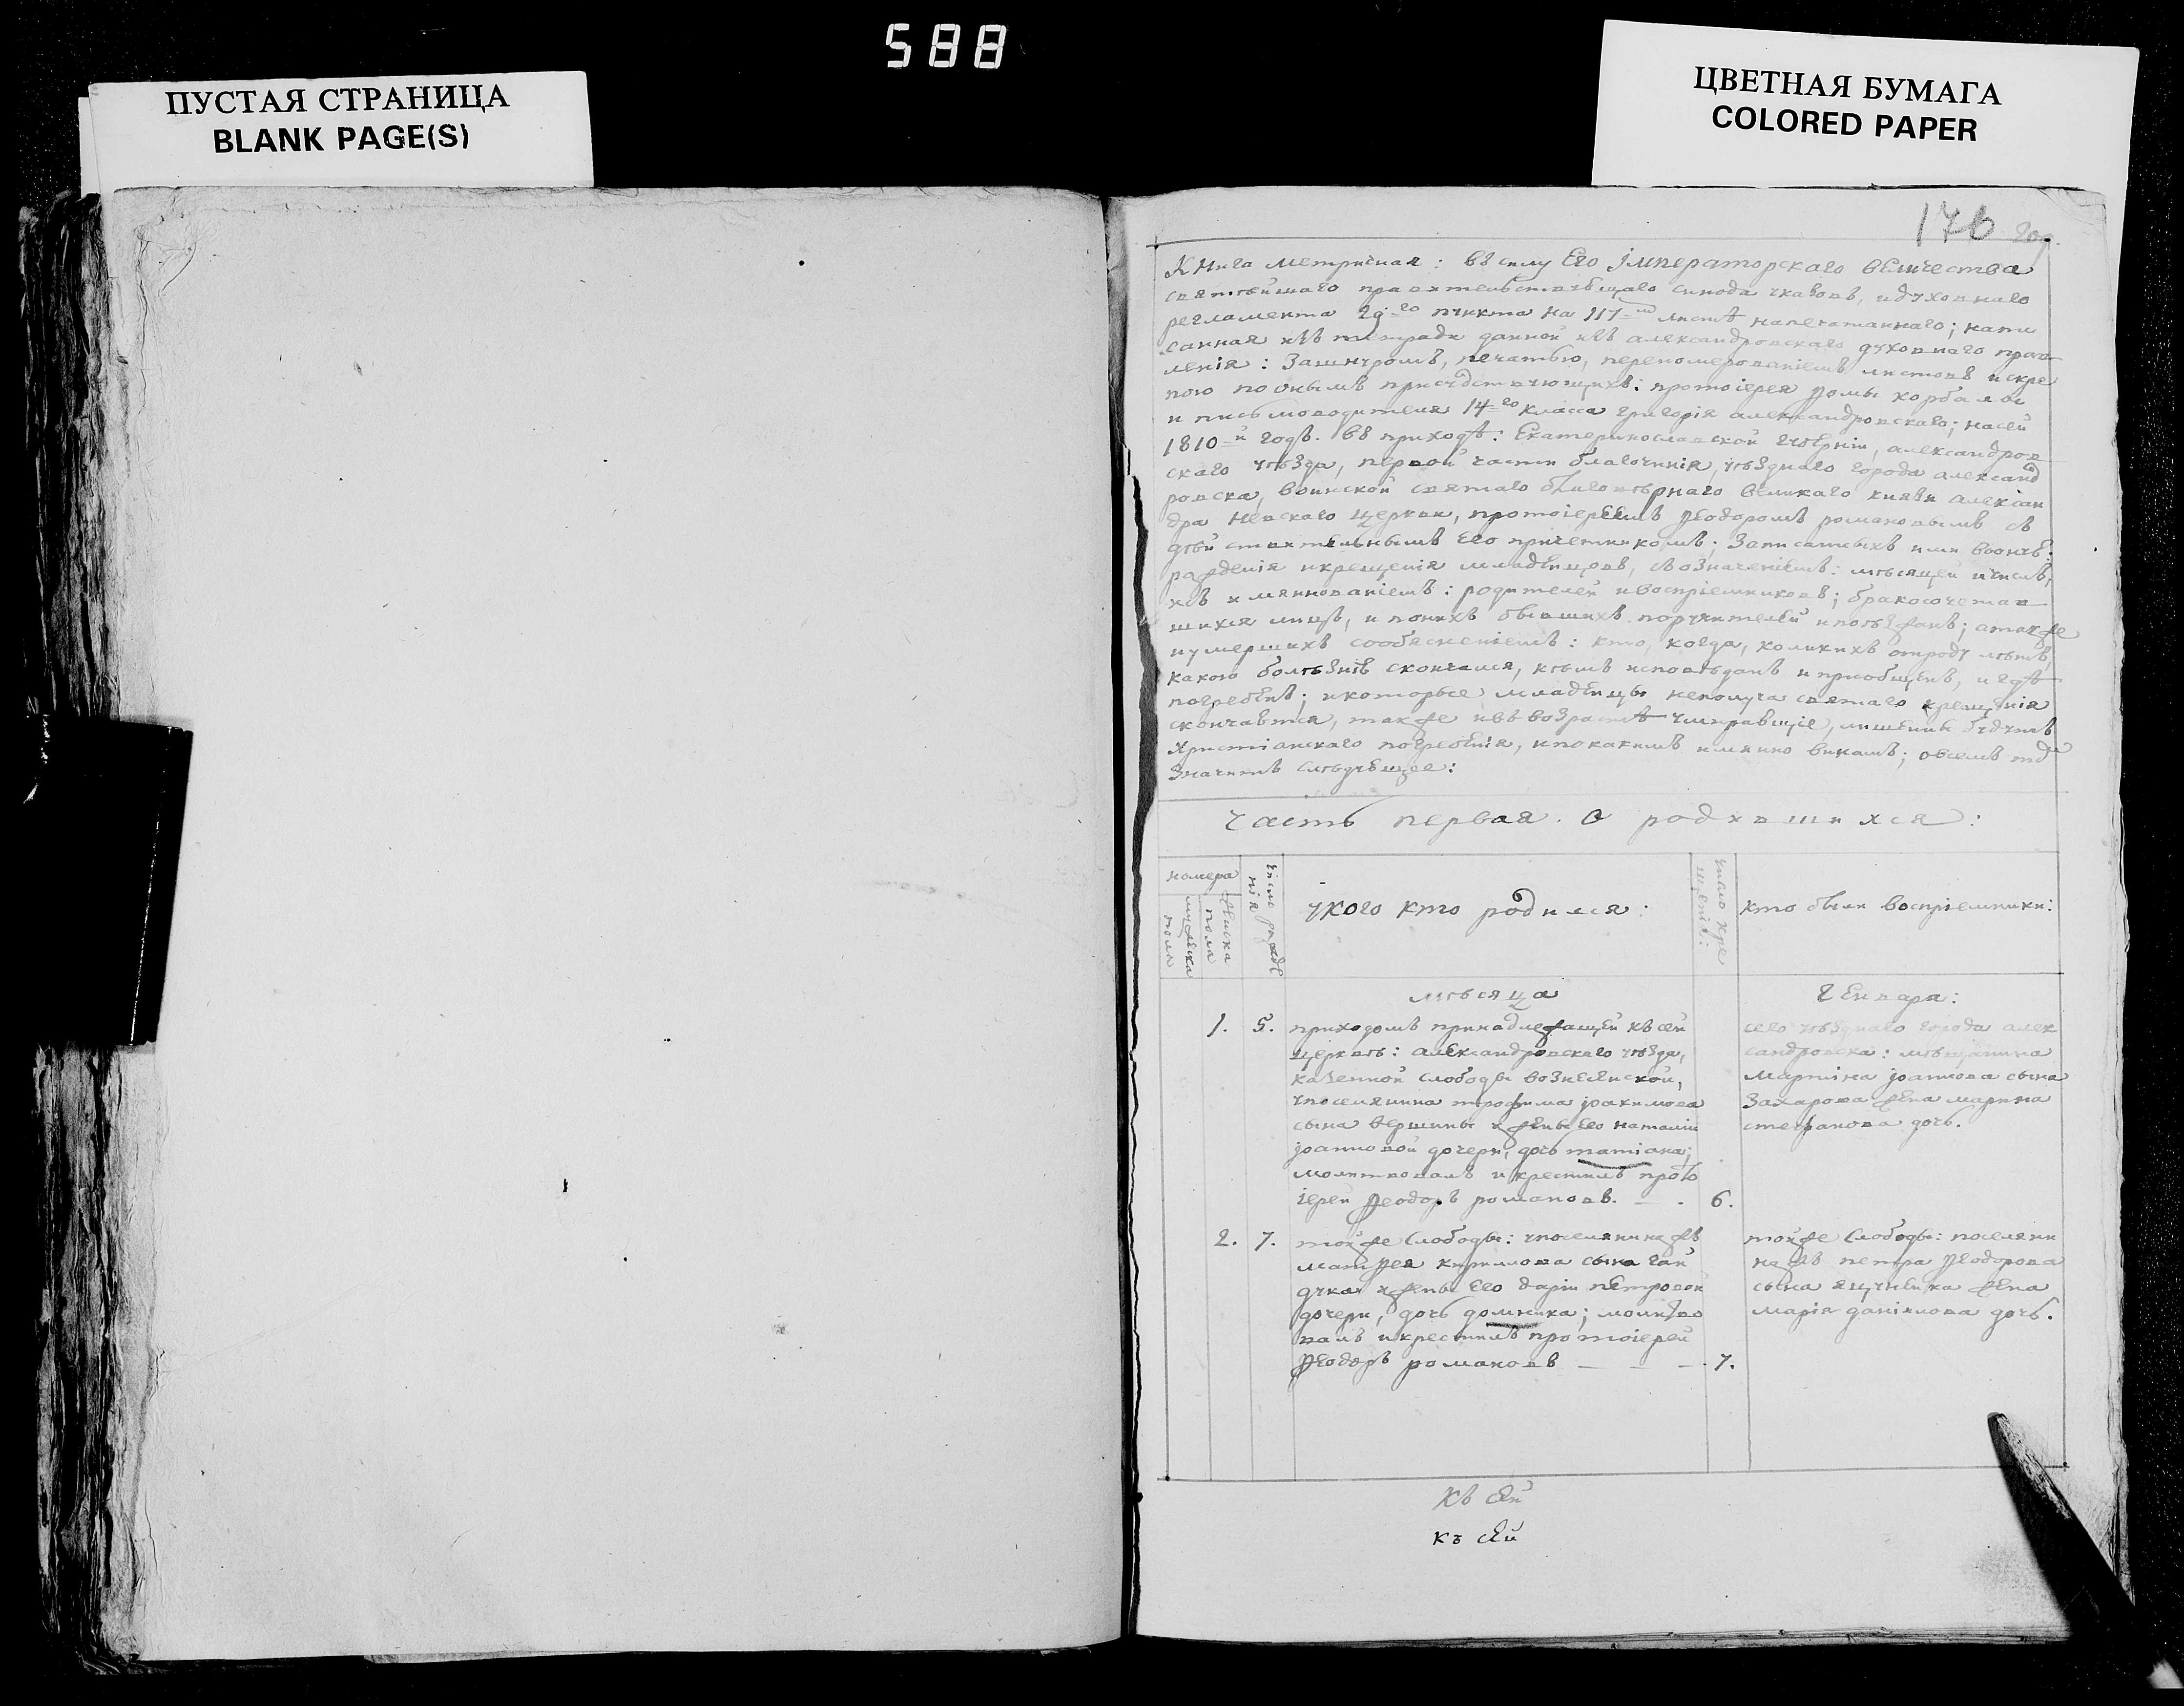 588
ПУСТАЯ СТРАНИЦА
BLANK PAGE(S)
ЦВЕТНАЯ БУМАГА
COLORED PAPER
176
Книга метричная: въ силу Его Императорскаго величества
святѣйшаго правительствующаго синода указовъ, и духовнаго
регламента 29-го пункта на 117-м листѣ напечатаннаго; напи
санная въ тетради данной изъ александровскаго духовнаго прав
ленія: За шнуромъ, печатью, перенумерованіемъ листовъ и скре
пою по онымъ присудствующихъ: протоіерея Ѳомы
и письмоводителя 14-го класса григорія александровскаго; на сей
1810-й годъ. въ приходѣ: Екатеринославской губерніи, александров
скаго уѣзда, первой части благочинія, уѣзднаго города александ
ровска, воинской святаго благовѣрнаго великаго князя алексан
дра Невскаго церкви, протоіереемъ Ѳеодоромъ романовымъ съ
дѣйствительнымъ его причетникомъ; Записатыхъ ими воонѣ:
рожденія и крещенія младенцовъ, съ означеніемъ: мѣсяцей и числъ,
и съ имяннованіемъ: родителей и воспріемниковъ; бракосочетав
шихся лицъ, и по нихъ бывшихъ поручителей и поѣзжанъ; а также
и умершихъ со объясненіемъ: кто, когда, коликихъ отроду лѣтъ,
какою болѣзнѣ скончался, кѣмъ исповѣданъ и приобщенъ, и гдѣ
погребенъ; и которые младенцы не получа святаго крещенія
скончается, также и въ возрастѣ умиравщіе, лишенны будутъ
Христіанскаго погребенія, и по какимъ имянно винамъ; о всемъ
Значитъ слѣдующее:
Часть первая. О родившихся:
номера
мужеска пола
женска пола
число рожденія
у кого кто родился:
число крещенія:
кто были воспріемники:
мѣсяца
Генваря:
1. 5. приходомъ принадлежащей къ сей
церквѣ: александровскаго уѣзда,
казенной слободы вознесенской,
у поселянина трофима іоакимова
сына вершины и жены его наталіи
іоанновой дочери, дочь татіана;
молитвовалъ и крестилъ прото
іерей Ѳеодоръ романовъ. 6.
сего уѣзднаго города алек
сандровска: мѣщанина
мартіна іоаннова сына
Захарова жена марина
стефанова дочь.
2. 7. той же слободы: у поселянина жъ
матѳея кириллова сына гай
дука и жены его даріи петровой
дочери, дочь домника; молитво
валъ и крестилъ протоіерей
Ѳеодоръ романовъ 7.
той же слободы: поселяни
на жъ петра Ѳеодорова
сына яценка жена
марія даніилова дочь.
Къ сей
къ сей